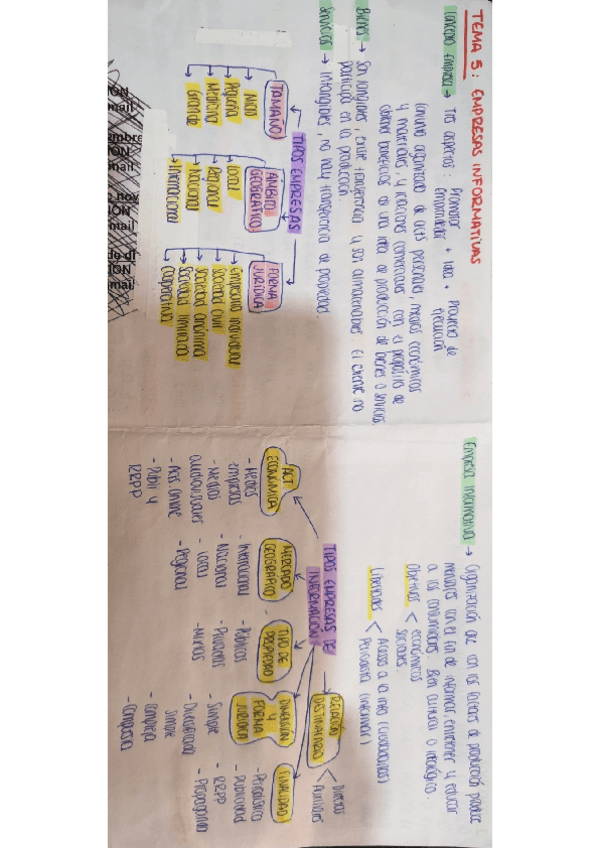 TEMA 5: EMPRESAS INFORMATIVAS
Concepto Empresa → Tres aspectos: Promotor Emprendedor + Idea + Proyecto de Ejecución
Conjunto organizado de personales, medios económicos
y materiales, y relaciones comerciales con el propósito de
obtener beneficios de una idea de producción de bienes o servicios.
Bienes → Son tangibles, existe transferencia y son almacenables. El cliente no
participa en la producción.
Servicios → Intangibles, no hay transferencia de propiedad.
TIPOS EMPRESAS
TAMAÑO
Micro
Pequeña
Mediana
Grande
ÁMBITO GEOGRÁFICO
Local
Regional
Nacional
Internacional
FORMA JURÍDICA
Empresario individual
Sociedad civil
Sociedad anónima
Sociedad limitada
Cooperativa
Empresa Informativa → Organización que con los factores de producción produce
mensajes con el fin de informar, entretener y educar
a los consumidores. Bien cultural o ideológico.
Objetivos < económicos
sociales.
Libertades < Acceso a la info (ciudadanos)
Periodista (informar)
TIPOS EMPRESAS DE
INFORMACIÓN
RELACIÓN
DESTINATARIO
< Directas
Auxiliares
ACT
ECONÓMICA
- Medios
impresos
- Medios
audiovisuales
- Online
- Publi y
RRPP
MERCADO
GEOGRÁFICO
- Internacional
- Nacional
- Local
- Regional
TIPO DE
PROPIEDAD
- Públicas
- Privadas
- Mixtas
DIMENSIÓN
Y
FORMA
JURÍDICA
- Simple
- Diversificada
simple
- Compleja
- Compuesta
FINALIDAD
- Periodístico
- Publicidad
- RRPP
- Propaganda